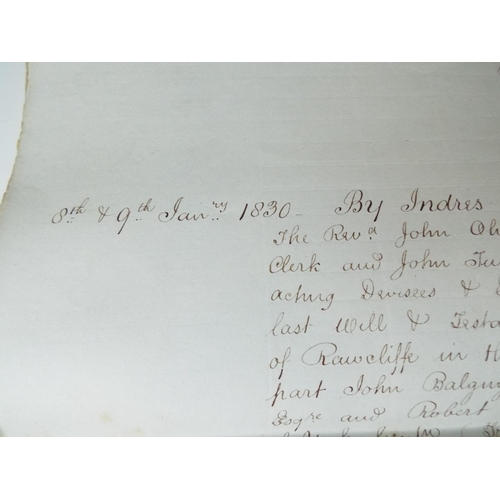 8th & 9th Janry 1830 - By Indres
The Revd John
Clerk and John
acting Devisees &
last Will &
of Rawcliffe in
part John
Esqre and Robert